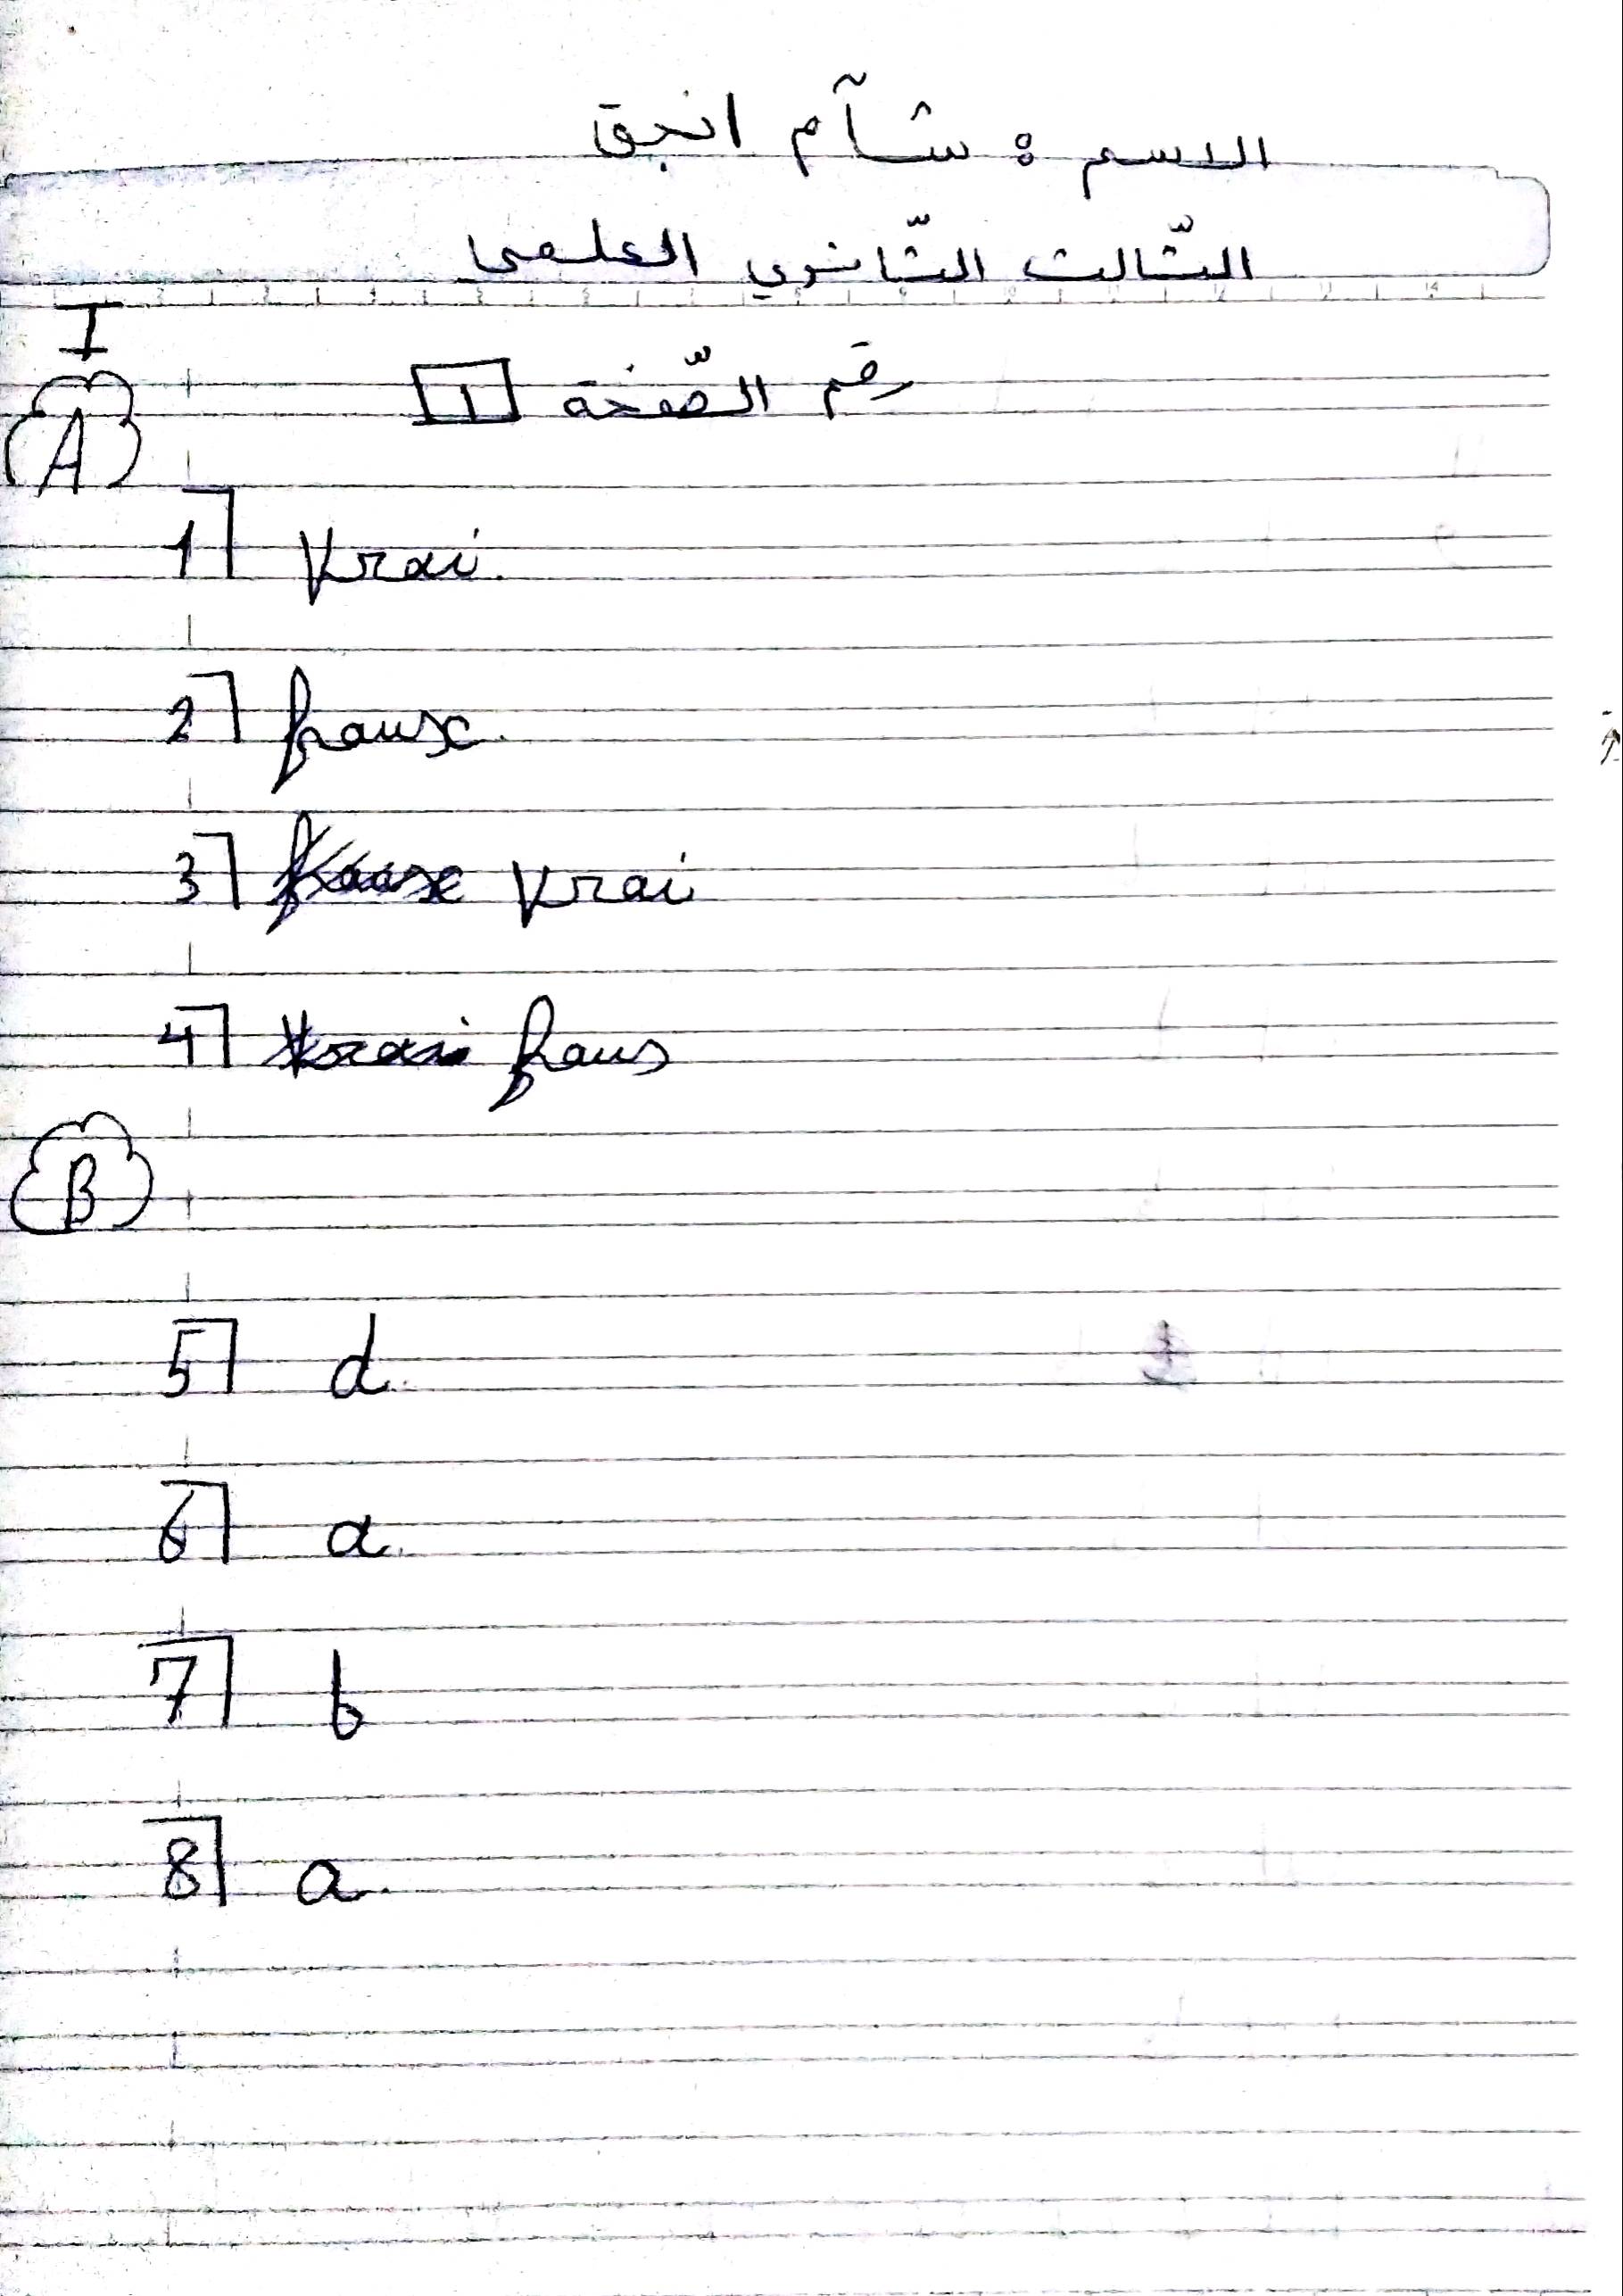 الاسم : شآم انجق
الثّالث الثّانوي العلمي
I
رقم الصّفحة 1
A
1 Vrai.
2 fause.
3 fause Vrai
4 Vrai faus
B
5 d.
6 a.
7 b
8 a.